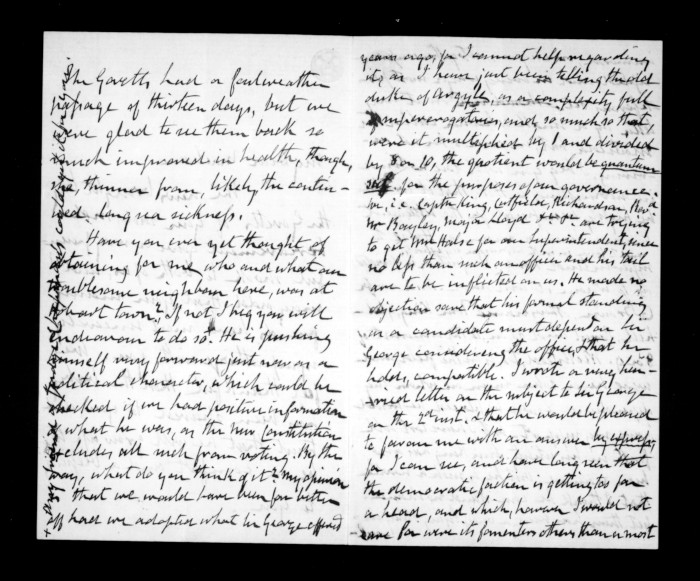 The Gavetts had a foul weather
passage of thirteen days, but we
were glad to see them back so
much improved in health, though
she, thinner from, likely the contin-
ued long sea sickness.
Have you ever yet thought of
obtaining for me, who and what our
troublesome neighbour here, was at
Hobart town? If not I beg you will
endeavour to do so. He is pushing
himself very forward just now as a
political character, which could be
checked if we had positive information
of what he was, as the New Constitution
excludes all such from voting. By the
way, what do you think of it? My opinion
is that we would have been far better
off had we adopted what Sir George offered
years ago, for I cannot help regarding
it, as I have just been telling the old
duke of Argyle, as a complexity full
supererogatories, and so much so that,
were it multiplied by 1 and divided
by 8 or 10, the quotient would be quantum
for the purposes of our governance.
i.e. Captn King, Richardson,
Mr Bayley, Major Lloyd &c &c are trying
to get Mr Halse for our Superintendent, since
no less than such an officer and his tail
are to be inflicted on us. He made no
objection save that his formal standing
as a candidate must depend on Sir
George considering the office, & that he
holds, compatible. I wrote a very hur-
ried letter on the subject to Sir George
on the 2d inst. & that he would be pleased
to favour me with an answer by express
for I can see, and have long seen that
the democratic faction is getting too far
a head, and which, however I would not
care for were its fomenters others than a most